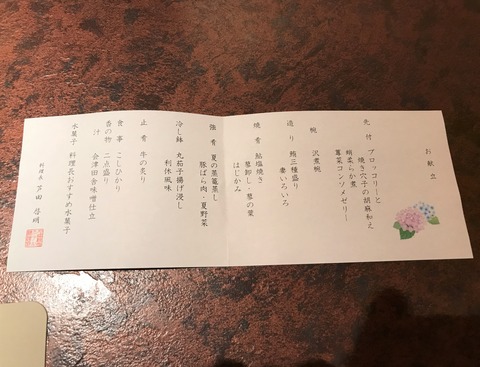 お献立
先付 ブロッコリーと
焼き穴子の胡麻和え
蛸柔らか煮
蓴菜コンソメゼリー
椀 沢煮椀
造り 鮪三種盛り
妻いろいろ
焼肴 鮎塩焼き
蓼卸し・蓼の葉
はじかみ
強肴 夏の蒸篭蒸し
豚ばら肉・夏野菜
冷し鉢 丸茄子揚げ浸し
利休風味
止肴 牛の炙り
食事 こしひかり
香の物 二点盛り
汁 会津田舎味噌仕立
水菓子 料理長おすすめ水菓子
料理長 芦田